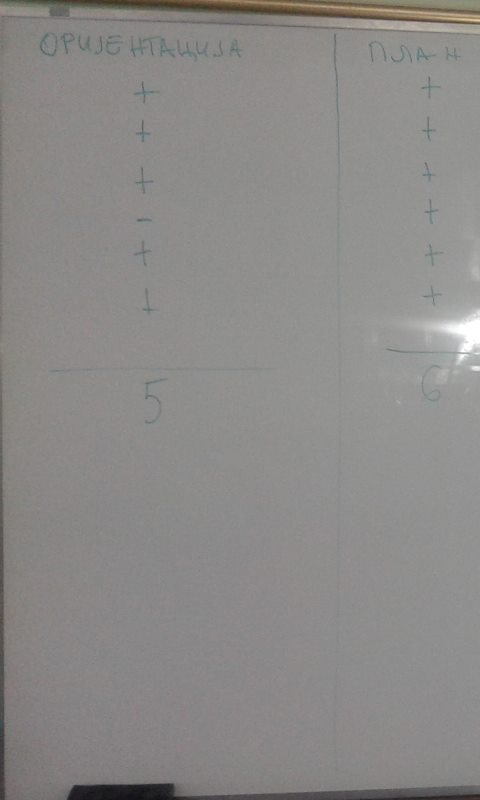 ОРИЈЕНТАЦИЈА
+
+
+
-
+
+
5
ПЛАН
+
+
+
+
+
+
6